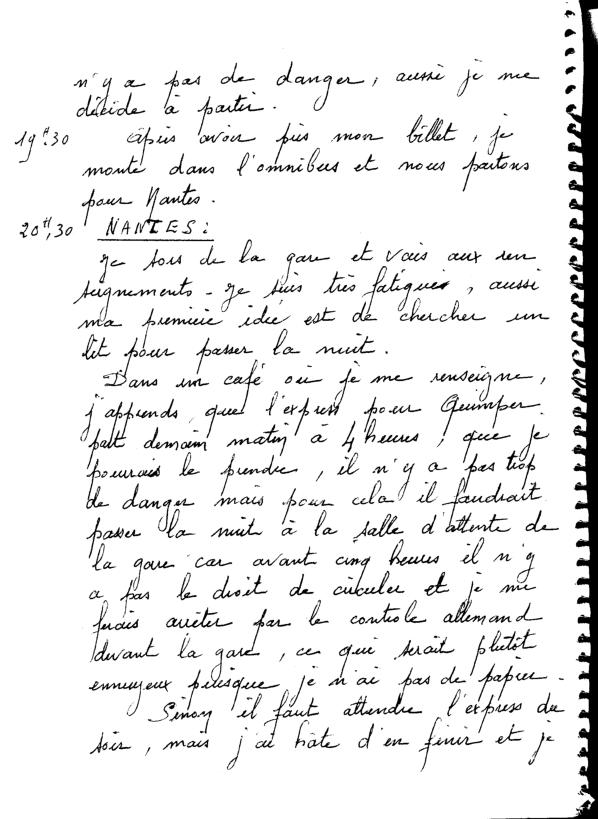 n'y a pas de danger, aussi je me
décide à partir.
19H.30 Après avoir pris mon billet, je
monte dans l'omnibus et nous partons
pour Nantes.
20H,30 NANTES:
Je sors de la gare et vais aux ren
seignements - Je suis très fatiguée, aussi
ma première idée est de chercher un
lit pour passer la nuit.
Dans un café où je me renseigne,
j'apprends que l'express pour Quimper
part demain matin à 4 heures, que je
pourrais le prendre, il n'y a pas trop
de danger mais pour cela il faudrait
passer la nuit à la salle d'attente de
la gare car avant cinq heures il n'y
a pas le droit de circuler et je me
ferais arrêter par le controle allemand
devant la gare, ce qui serait plutôt
ennuyeux puisque je n'ai pas de papier.
Sinon il faut attendre l'express du
soir, mais j'ai hâte d'en finir et je